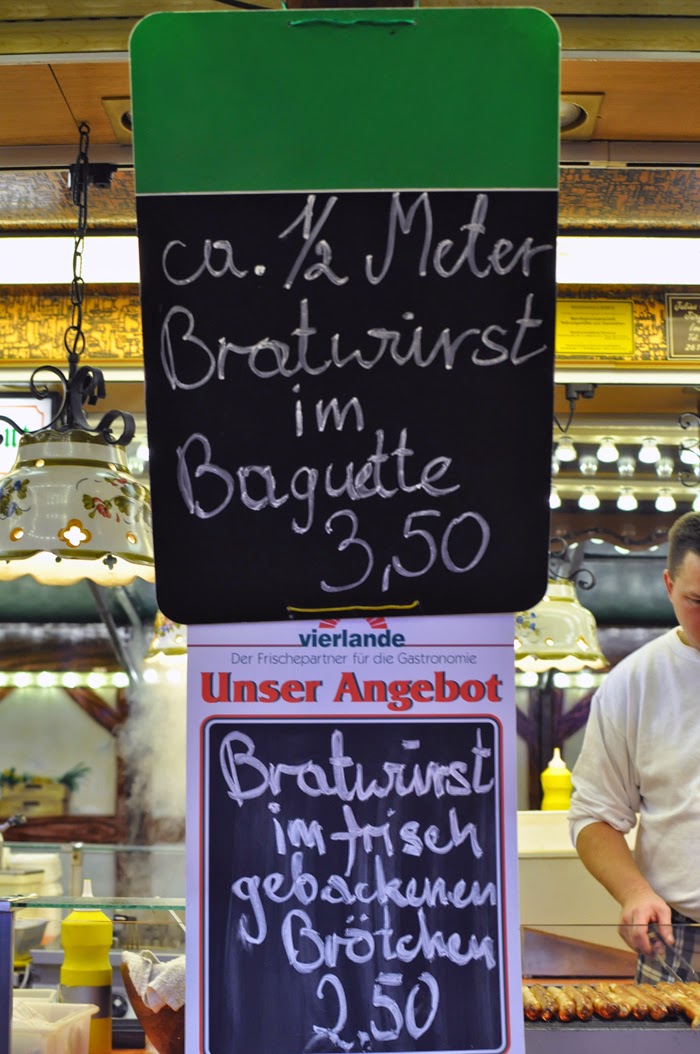 ca. ½ Meter
Bratwurst
im
Baguette
3,50
vierlande
Der Frischepartner für die Gastronomie
Unser Angebot
Bratwurst
im frisch
gebackenen
Brötchen
2,50